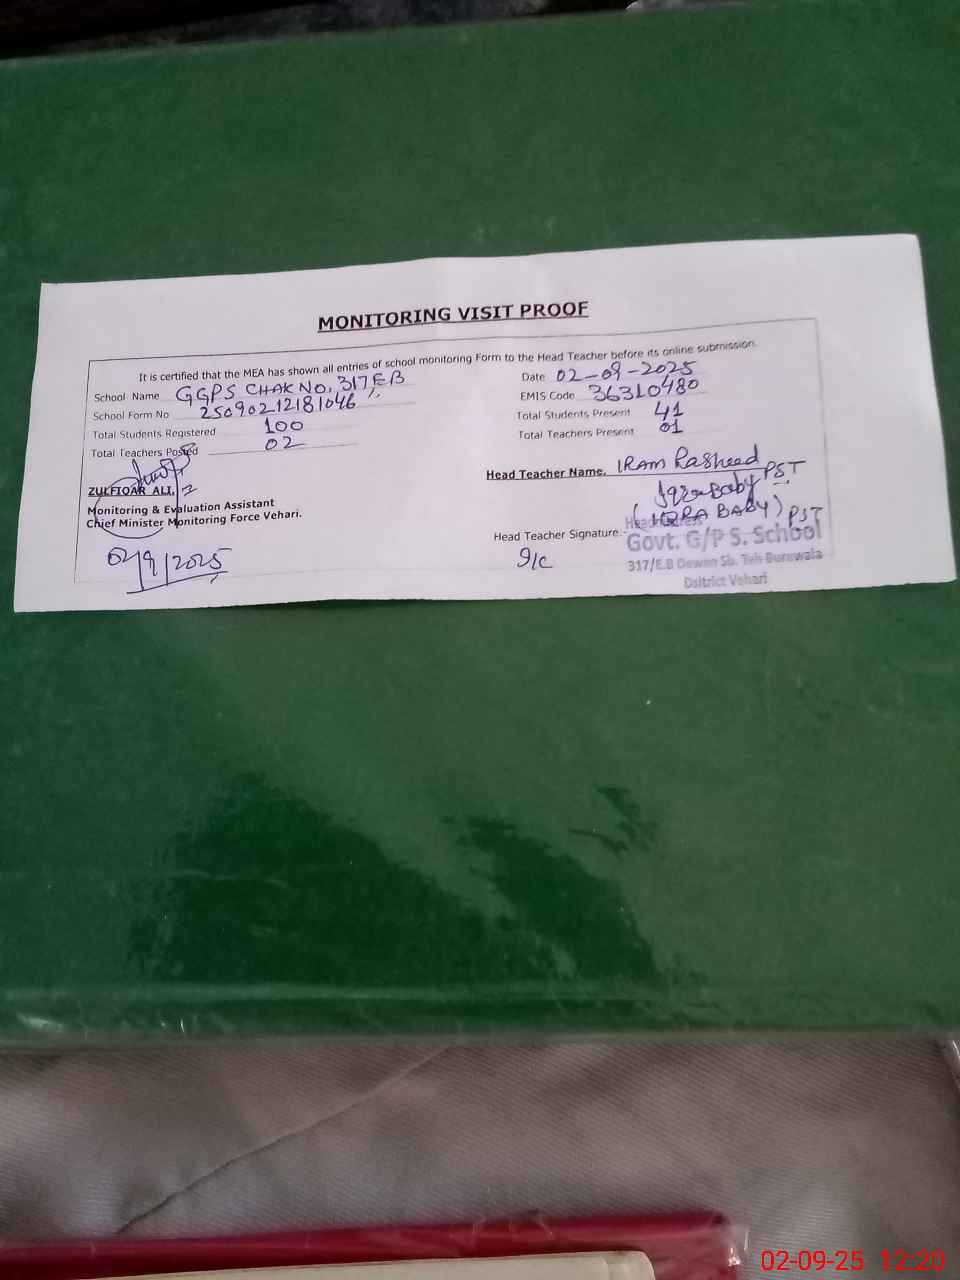 MONITORING VISIT PROOF
It is certified that the MEA has shown all entries of school monitoring Form to the Head Teacher before its online submission.
School Name GGPS CHAK NO. 317/EB
Date 02-09-2025
School Form No 25090212181046
EMIS Code 36310480
Total Students Registered 100
Total Students Present 41
Total Teachers Posted 02
Total Teachers Present 01
Head Teacher Name. IRAM Rasheed PST
ZULFIQAR ALI.
Iqra Baby
Monitoring & Evaluation Assistant
(IQRA BABY) PST
Chief Minister Monitoring Force Vehari.
Headmistress
Head Teacher Signature:-
Govt. G/P S. School
02/9/2025
I/C
317/E.B Dewan Sb. Teh Burewala
Dsitrict Vehari
02-09-25 12:20